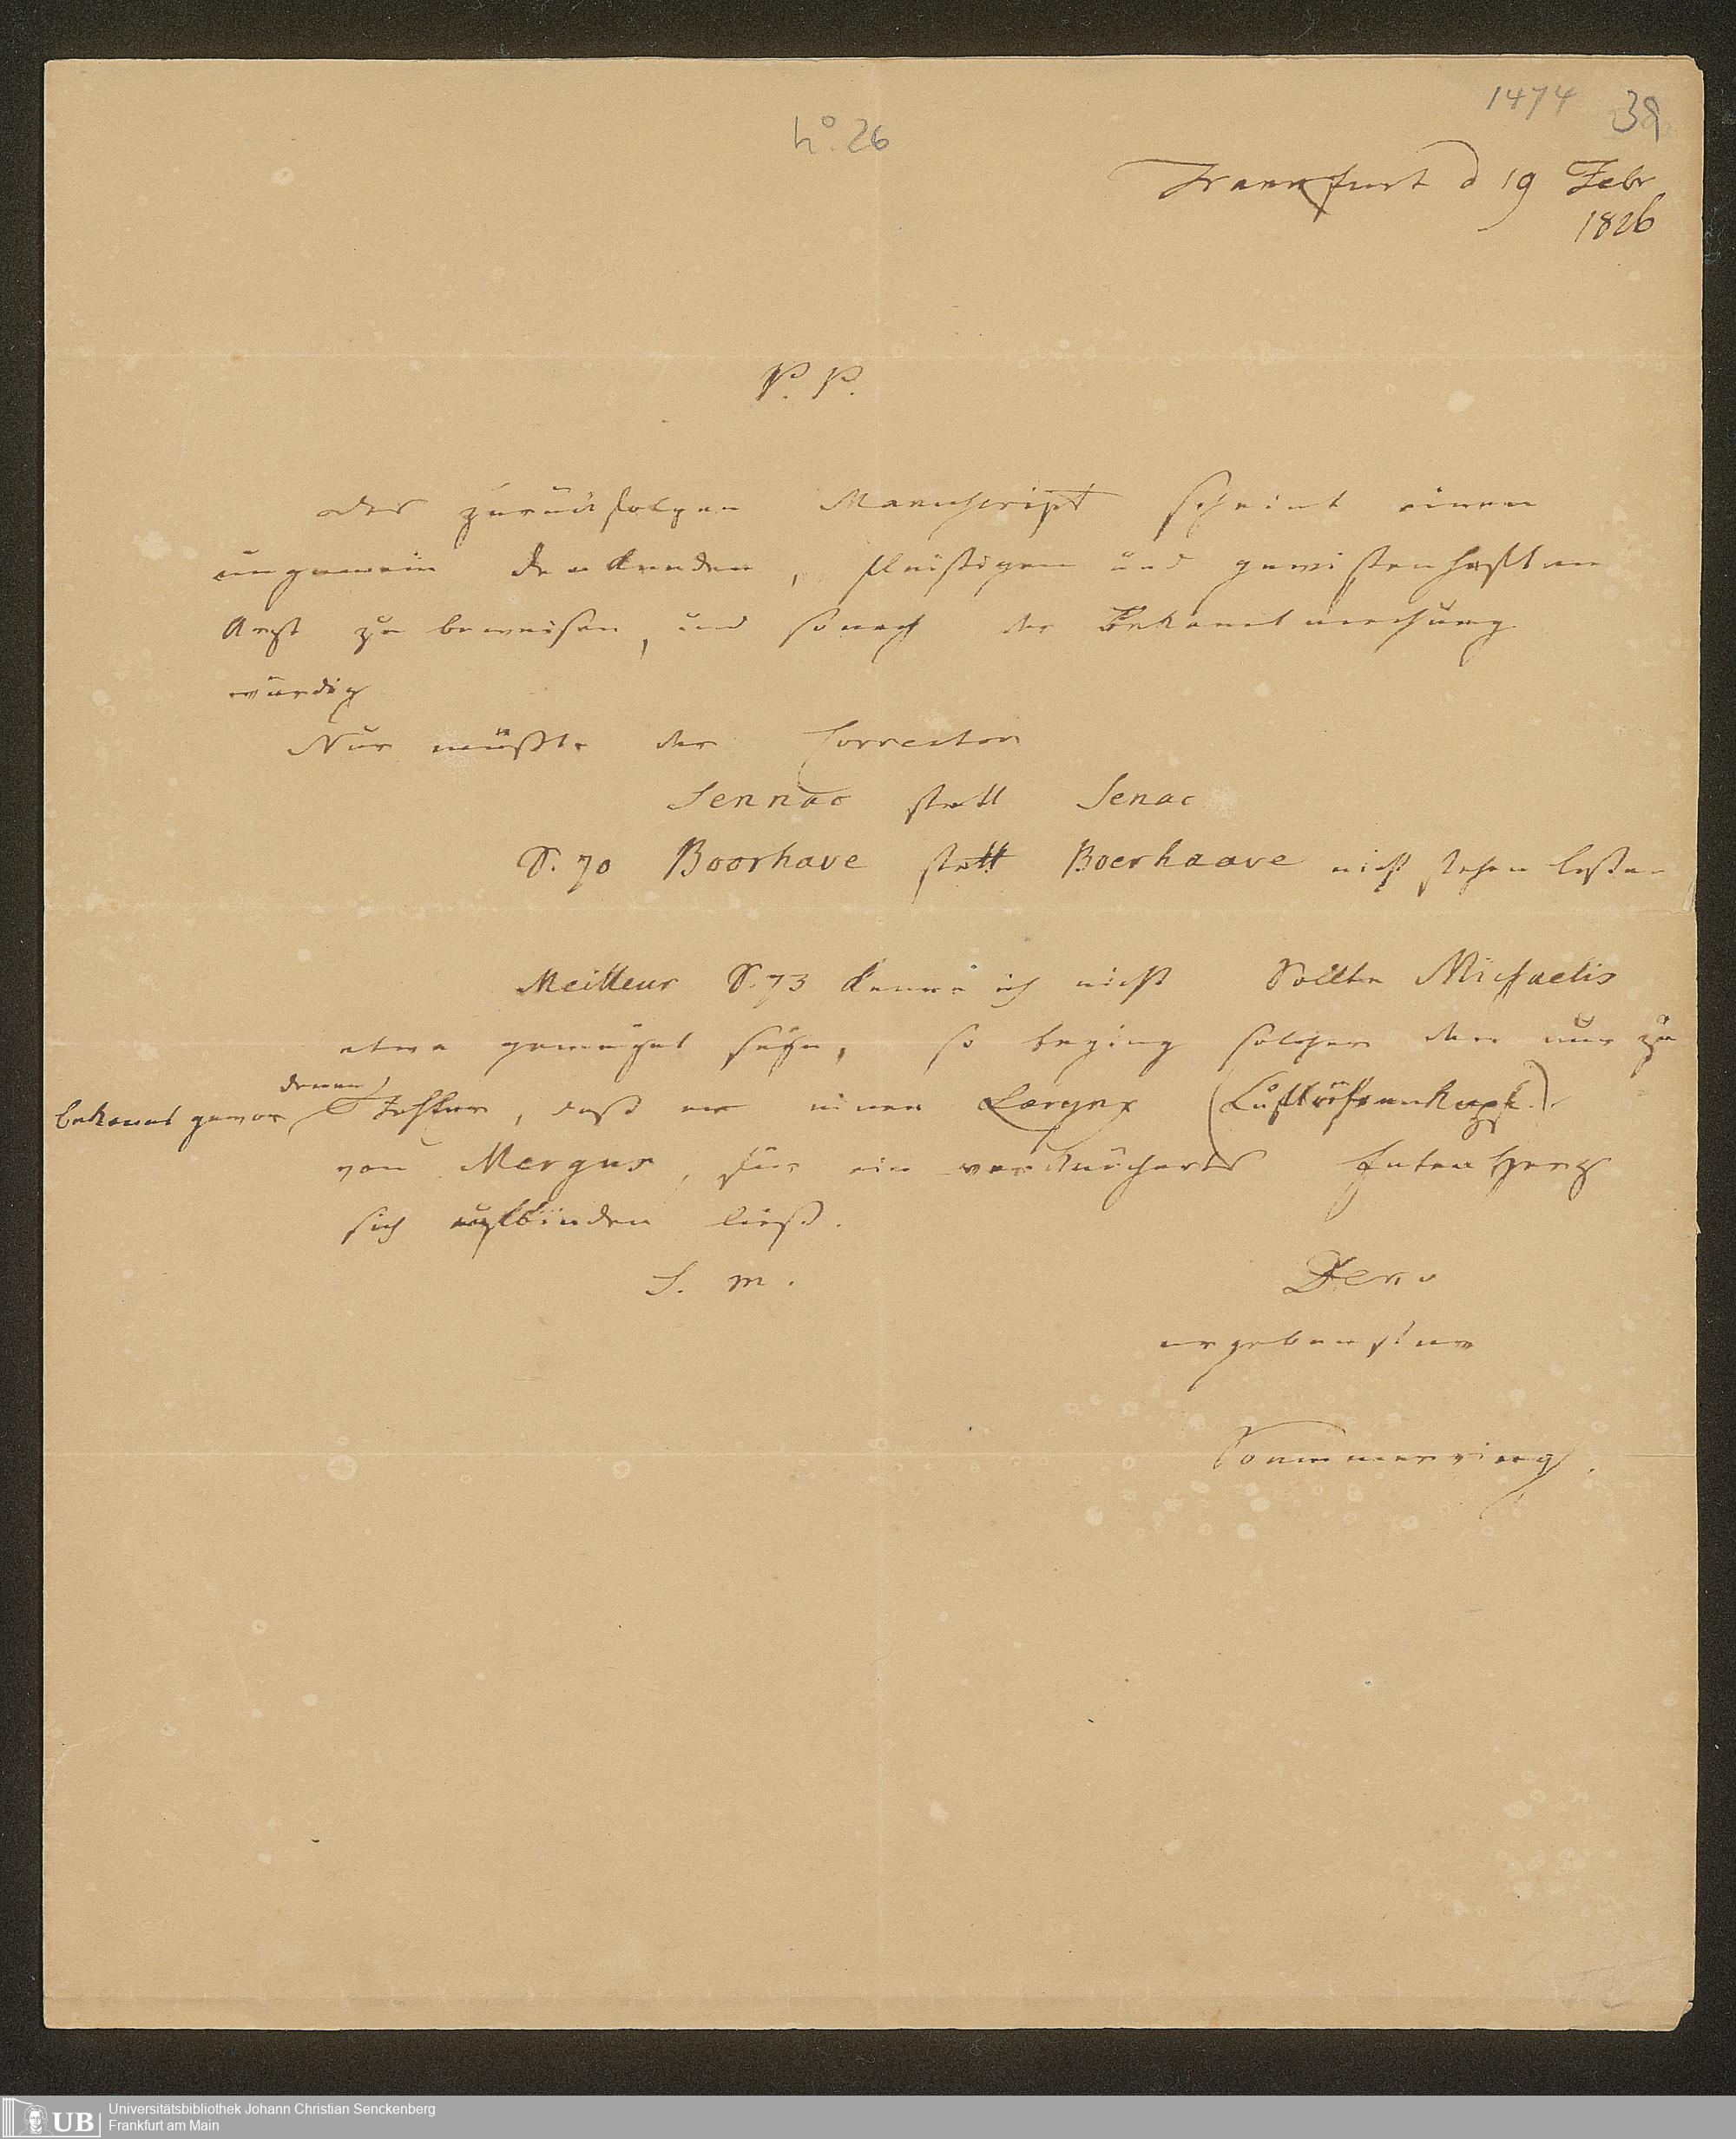 1474 39
No. 26
Frankfurt d 19 Febr
1826
P. P.
das zurückfolgen Manuscript scheint einen
ungemein denkenden, fleißigen und gewissenhaften
Arzt zu beweisen, und sonach der Bekanntmachung
würdig
Nur müßte der Corrector
Sennac statt Senac
S. 70 Boorhave statt Boerhaave nicht stehen laßen
Meilleur S. 73 kenne ich nicht Sollte Michaelis
etwa gemeynt seyn, so beging solcher den nur zu
bekannt gewordenen Fehler, daß er einen Larynx (Luftröhrenkopf)
von Mergus, für ein verknöchertes Enten Herz
sich aufbinden ließ.
S. m. Dero
ergebenster
Soemmerring.
UB Universitätsbibliothek Johann Christian Senckenberg
Frankfurt am Main